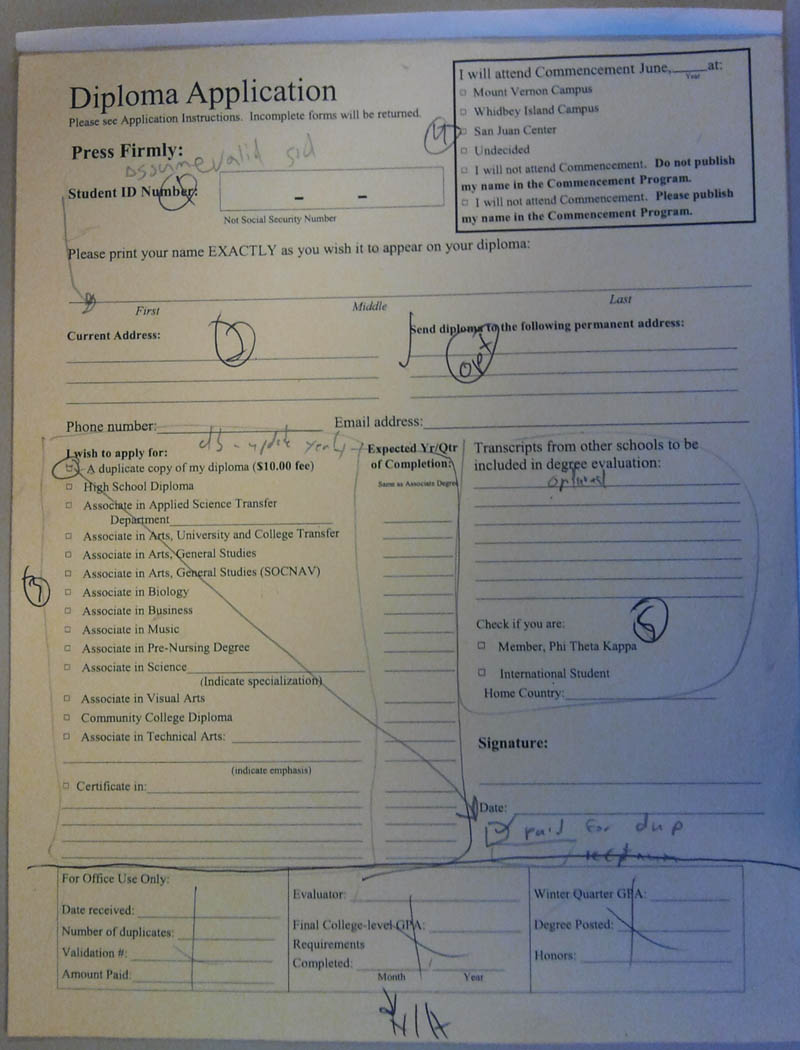 Diploma Application
Please see Application Instructions. Incomplete forms will be returned.
Press Firmly:
assume valid sid
Student ID Number:
- -
Not Social Security Number
I will attend Commencement June,_____at:
Year
Mount Vernon Campus
Whidbey Island Campus
San Juan Center
Undecided
I will not attend Commencement. Do not publish
my name in the Commencement Program.
I will not attend Commencement. Please publish
my name in the Commencement Program.
Please print your name EXACTLY as you wish it to appear on your diploma:
First Middle Last
Current Address:
Send diploma to the following permanent address:
Phone number: Email address:
I wish to apply for:
A duplicate copy of my diploma ($10.00 fee)
High School Diploma
Associate in Applied Science Transfer
Department
Associate in Arts, University and College Transfer
Associate in Arts, General Studies
Associate in Arts, General Studies (SOCNAV)
Associate in Biology
Associate in Business
Associate in Music
Associate in Pre-Nursing Degree
Associate in Science
(Indicate specialization)
Associate in Visual Arts
Community College Diploma
Associate in Technical Arts:
(indicate emphasis)
Certificate in:
Expected Yr/Qtr
of Completion:
Same as Associate Degree
Transcripts from other schools to be
included in degree evaluation:
Check if you are:
5
Member, Phi Theta Kappa
International Student
Home Country:
Signature:
Date:
paid for dup
For Office Use Only:
Date received:
Number of duplicates:
Validation #:
Amount Paid:
Evaluator:
Final College-level GPA:
Requirements
Completed: /
Month Year
Winter Quarter GPA:
Degree Posted:
Honors: